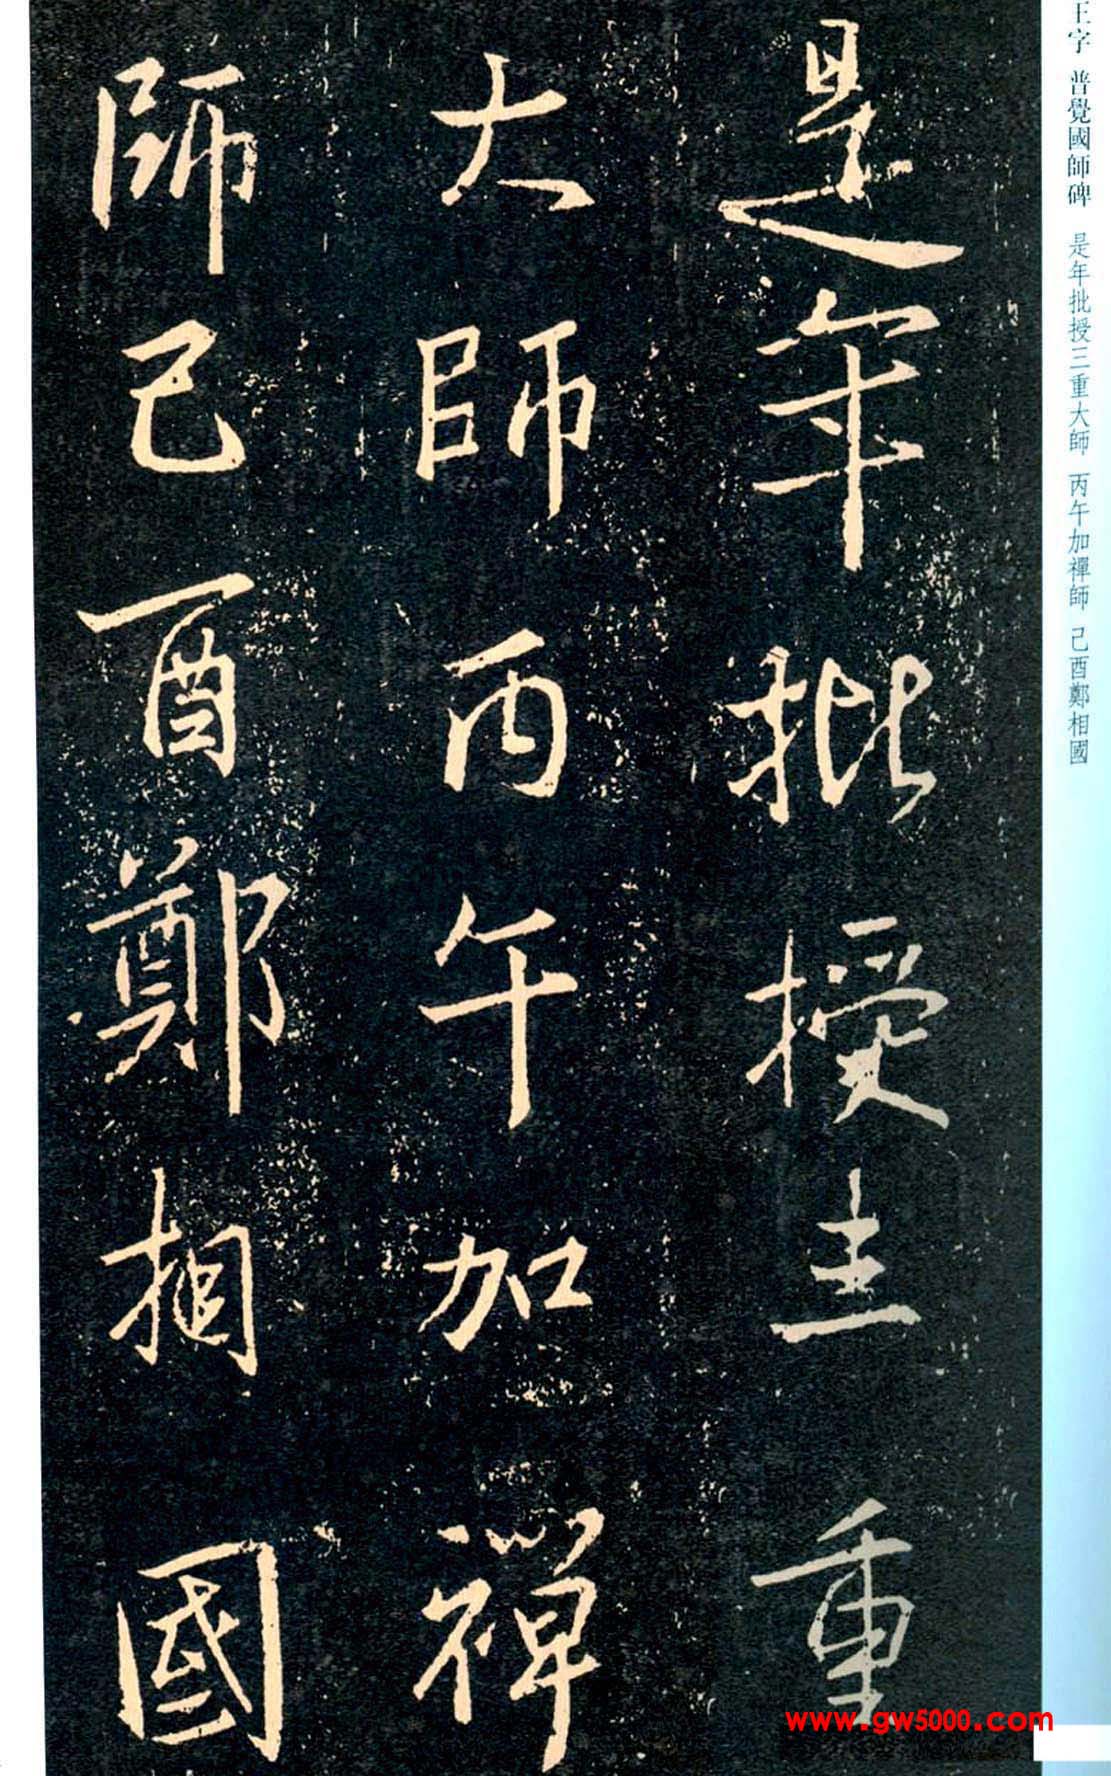 王字 普覺國師碑 是年批授三重大師 丙午加禪師 己酉鄭相國
是年批授三重
大師丙午加禪
師己酉鄭相國
www.gw5000.com